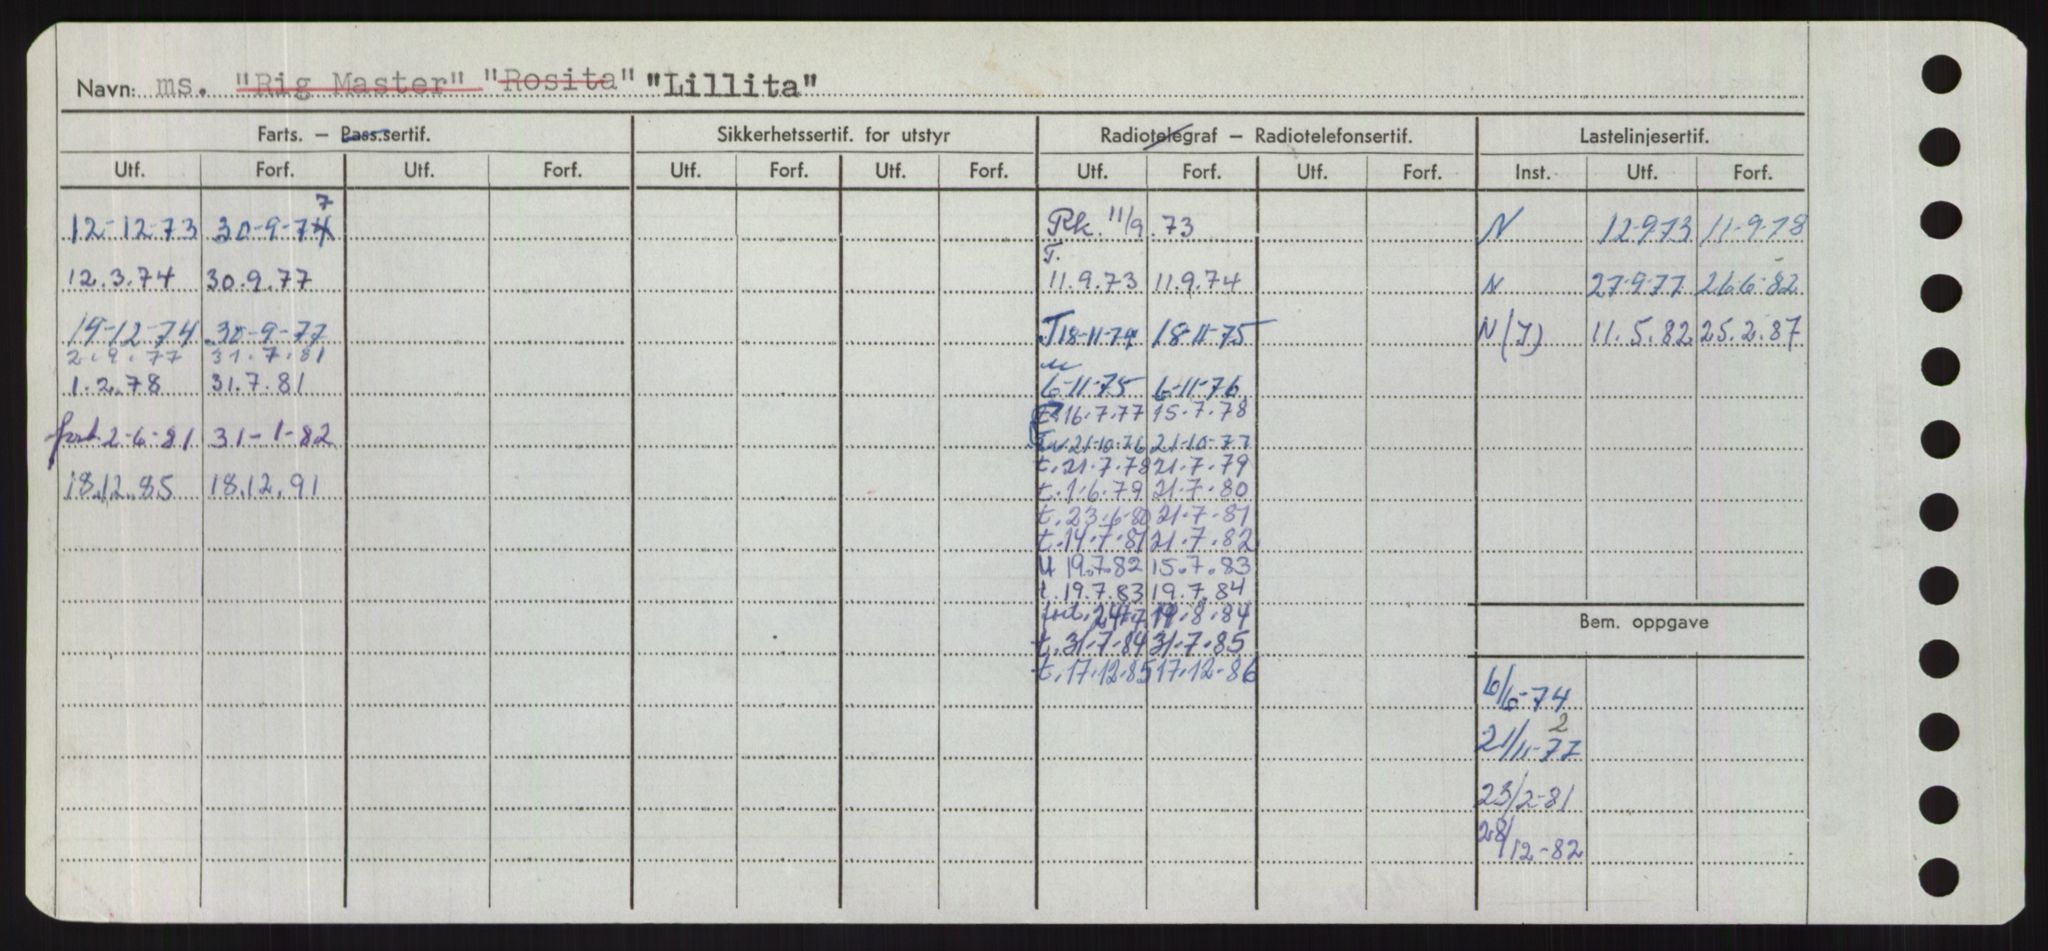 Navn: ms. "Rig Master" "Rosita" "Lillita"
Farts. — Pass.sertif. Sikkerhetssertif. for utstyr Radiotelegraf — Radiotelefonsertif. Lastelinjesertif.
Utf. Forf. Utf. Forf. Utf. Forf. Utf. Forf. Utf. Forf. Utf. Forf. Inst. Utf. Forf.
7
12-12-73 30-9-74 Rk. 11/9.73 N 12-9-73 11-9-78
T.
12.3.74 30.9.77 11.9.73 11.9.74 N 27-9-77 26-6-82
19-12-74 30-9-77 T 18-11-74 18-11-75 N(I) 11.5.82 25.2.87
2.9.77 31.7.81
1.2.78 31.7.81 6-11-75 6-11-76
t.16.7.77 15.7.78
forl. 2-6-81 31-1-82 21-10-76 21-10-77
t.21.7.78 21.7.79
18.12.85 18.12.91 t.1.6.79 21.7.80
t.23.6.80 21.7.81
t.14.7.81 21.7.82
U 19.7.82 15.7.83
t.19.7.83 19.7.84
forl. 24.7 19.8.84
Bem. oppgave
t.31.7.84 31.7.85
t.17.12.85 17.12.86
6/6-74
2
21/11-77
23/2-81
28/12-82